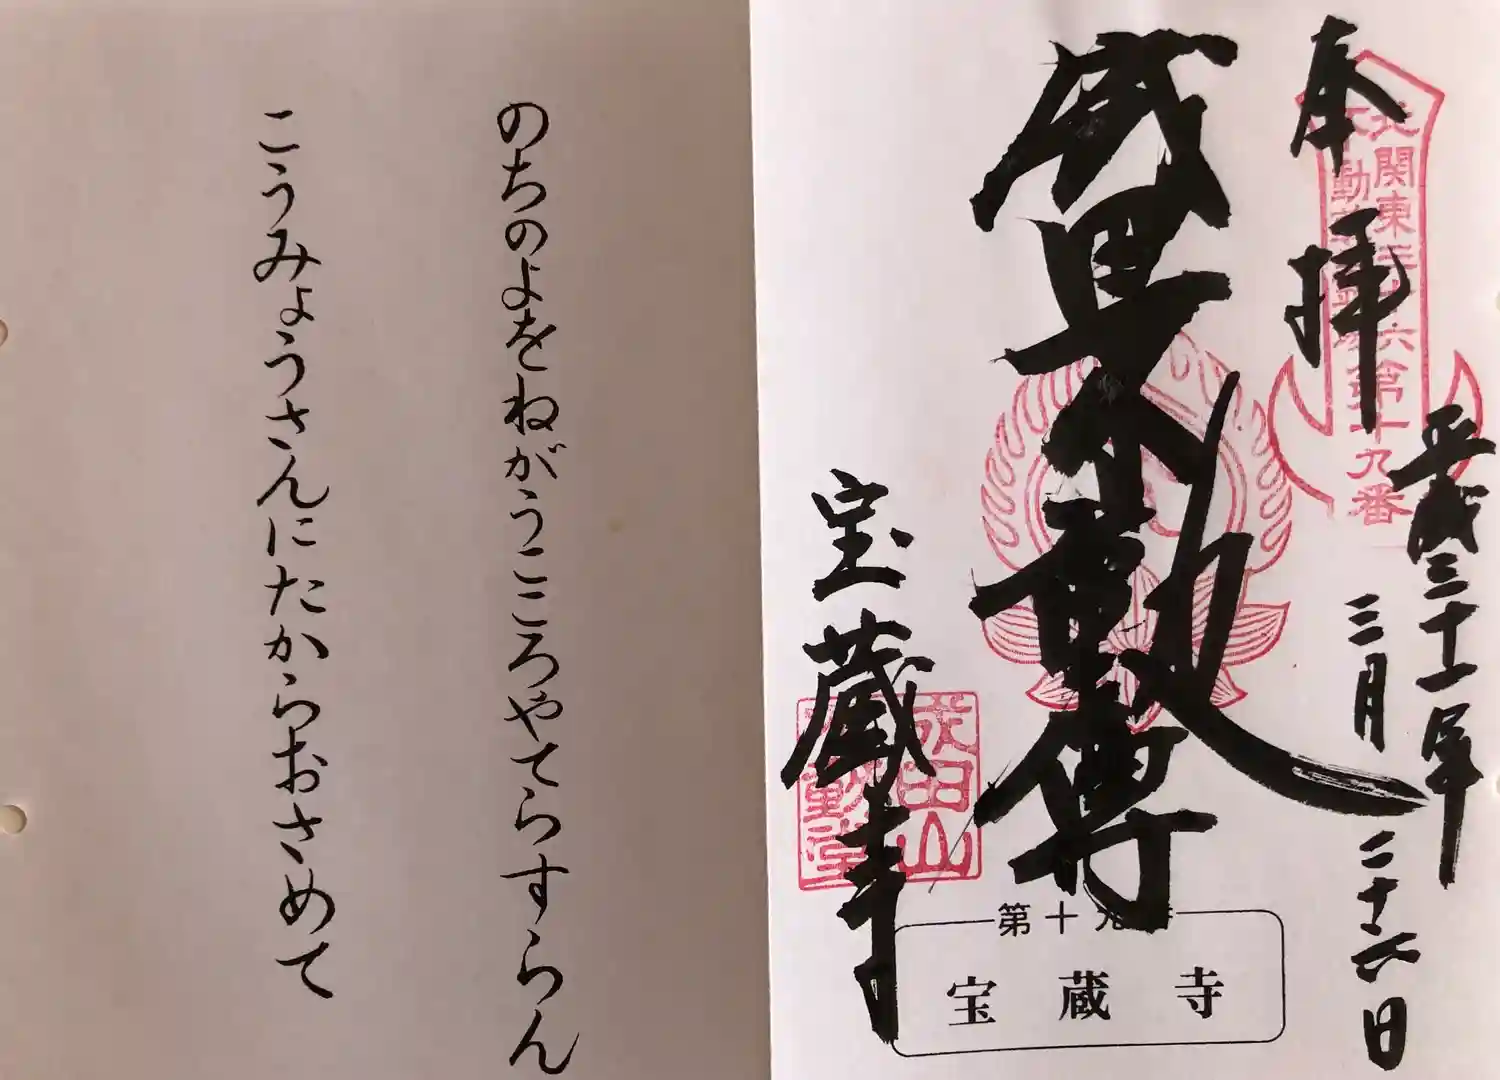 奉拝
北関東三十六第十九番
平成三十一年
三月二十六日
不動尊
宝蔵寺
成田山
第十九番
宝蔵寺
のちのよをねがうこころやてらすらん
こうみょうさんにたからおさめて